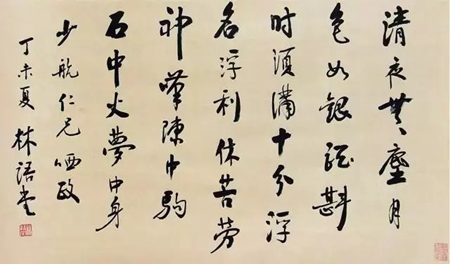 清夜無塵月
色如銀酒斟
時須滿十分浮
名浮利休苦勞
神嘆隙中駒
石中火夢中身
少航仁兄哂政
丁未夏 林語堂